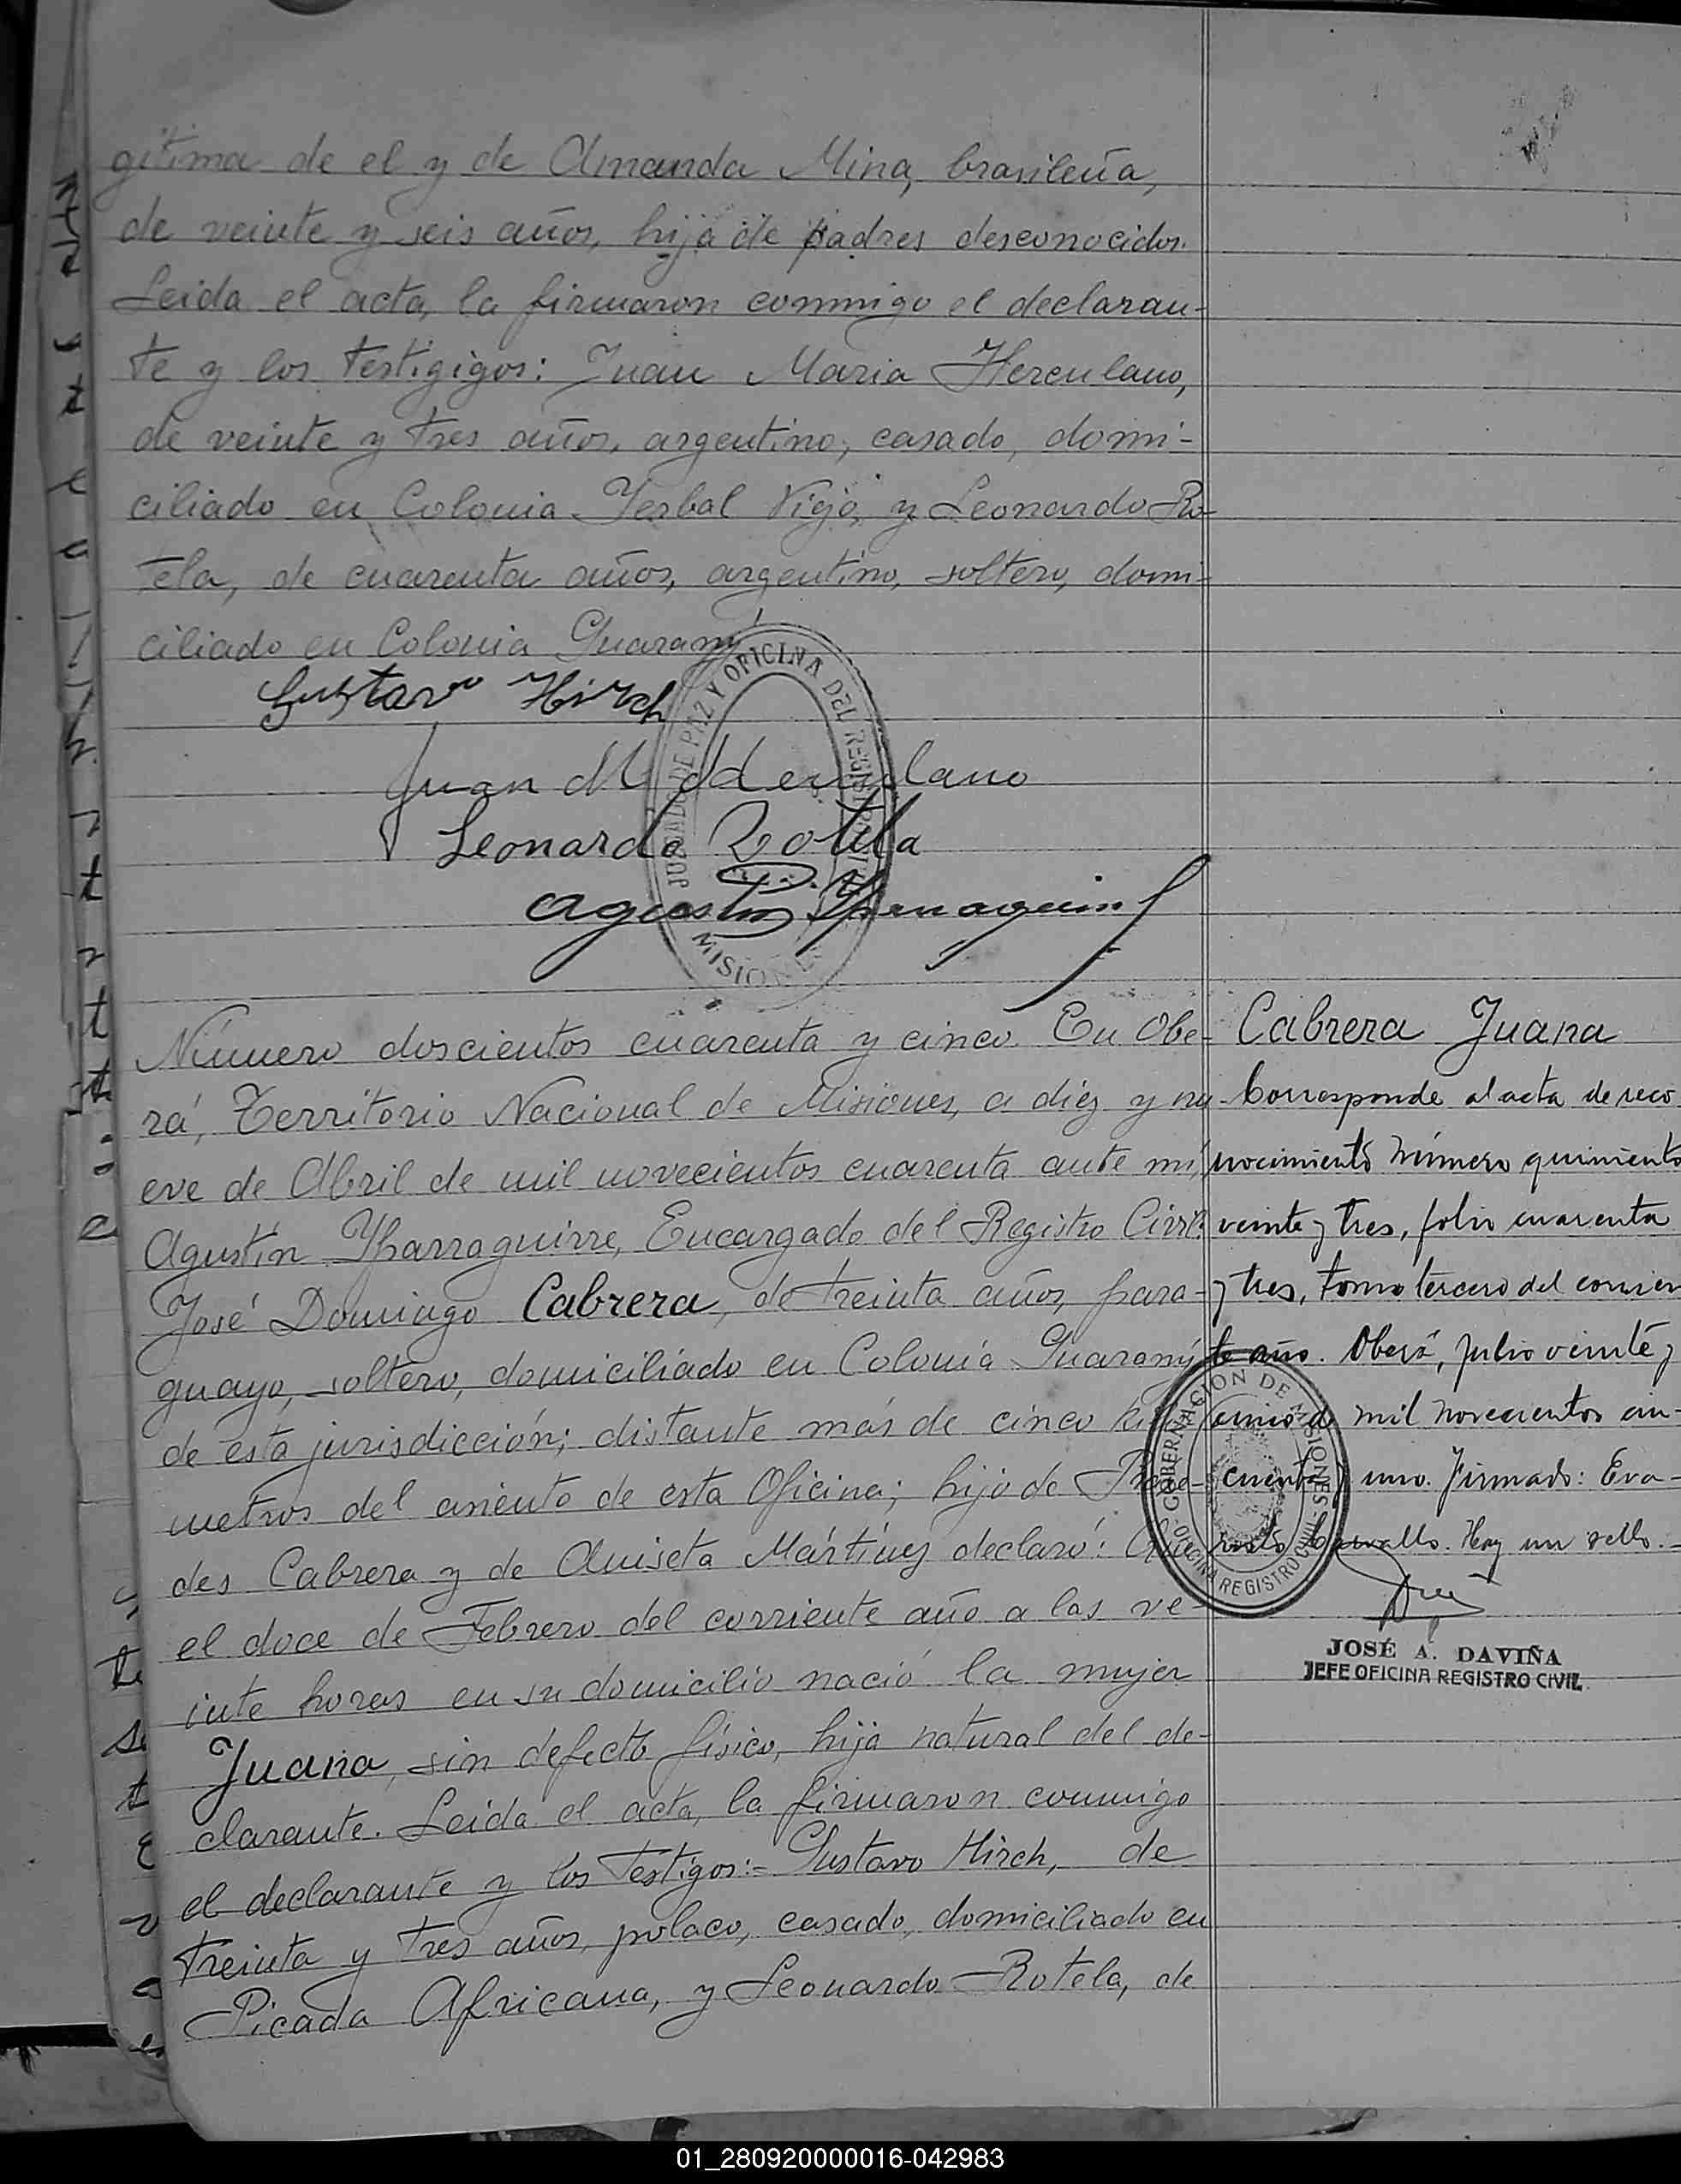 gitima de el y de Amanda Mina, brasileña,
de veinte y seis años, hija de padres desconocidos.
Leida el acta, la firmaron conmigo el declaran-
te y los testigigos: Juan Maria Herculano,
de veinte y tres años, argentino, casado, domi-
ciliado en Colonia Yerbal Viejo, y Leonardo Ro-
tela, de cuarenta años, argentino, soltero, domi-
ciliado en Colonia Guarany.
Gustavo Hirch
Juan M Herculano
Leonardo Rotela
Agustin
JUZGADO DE PAZ Y OFICINA DEL REGISTRO CIVIL
MISIONES
Número doscientos cuarenta y cinco. En Obe-
rá, Territorio Nacional de Misiones, a diéz y nu-
eve de Abril de mil novecientos cuarenta ante mi,
Agustín Ybarraguirre, Encargado del Registro Civil:
José Domingo Cabrera, de treinta años, para-
guayo, soltero, domiciliado en Colonia Guarany
de esta jurisdicción; distante más de cinco
metros del asiento de esta Oficina; hijo de
des Cabrera y de Aniseta Mártinez declaró: Que
el doce de Febrero del corriente año a las ve-
inte horas en su domicilio nació la mujer
Juana, sin defecto físico, hija natural del de-
clarante. Leida el acta, la firmaron conmigo
el declarante y los testigos:- Gustavo Hirch, de
treinta y tres años, polaco, casado, domiciliado en
Picada Africana, y Leonardo Rotela, de
Cabrera Juana
Corresponde al acta de reco
nocimiento número quiniento
veinte y tres, folio cuarenta
y tres, tomo tercero del corrien
te año. Oberá, Julio veinte y
cinco de mil novecientos cin-
cuenta y uno. Firmado: Eva-
risto Hay un sello.-
GOBERNACION DE MISIONES
OFICINA REGISTRO CIVIL
JOSÉ A. DAVIÑA
JEFE OFICINA REGISTRO CIVIL
01_280920000016-042983